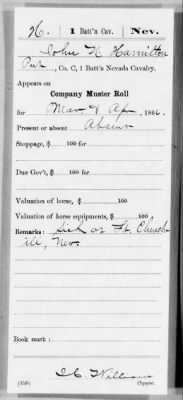 H. | 1 Batt'n Cav. | Nev.
John H. Hamilton
Pvt, Co. C, 1 Batt'n Nevada Cavalry.
Appears on
Company Muster Roll
for Mar & Apr, 1866.
Present or absent Absent
Stoppage, $ 100 for
Due Gov't, $ 100 for
Valuation of horse, $ 100
Valuation of horse equipments, $ 100
Remarks: Sick at Ft. Church-
ill, Nev.
Book mark:
Williams
(358) Copyist.